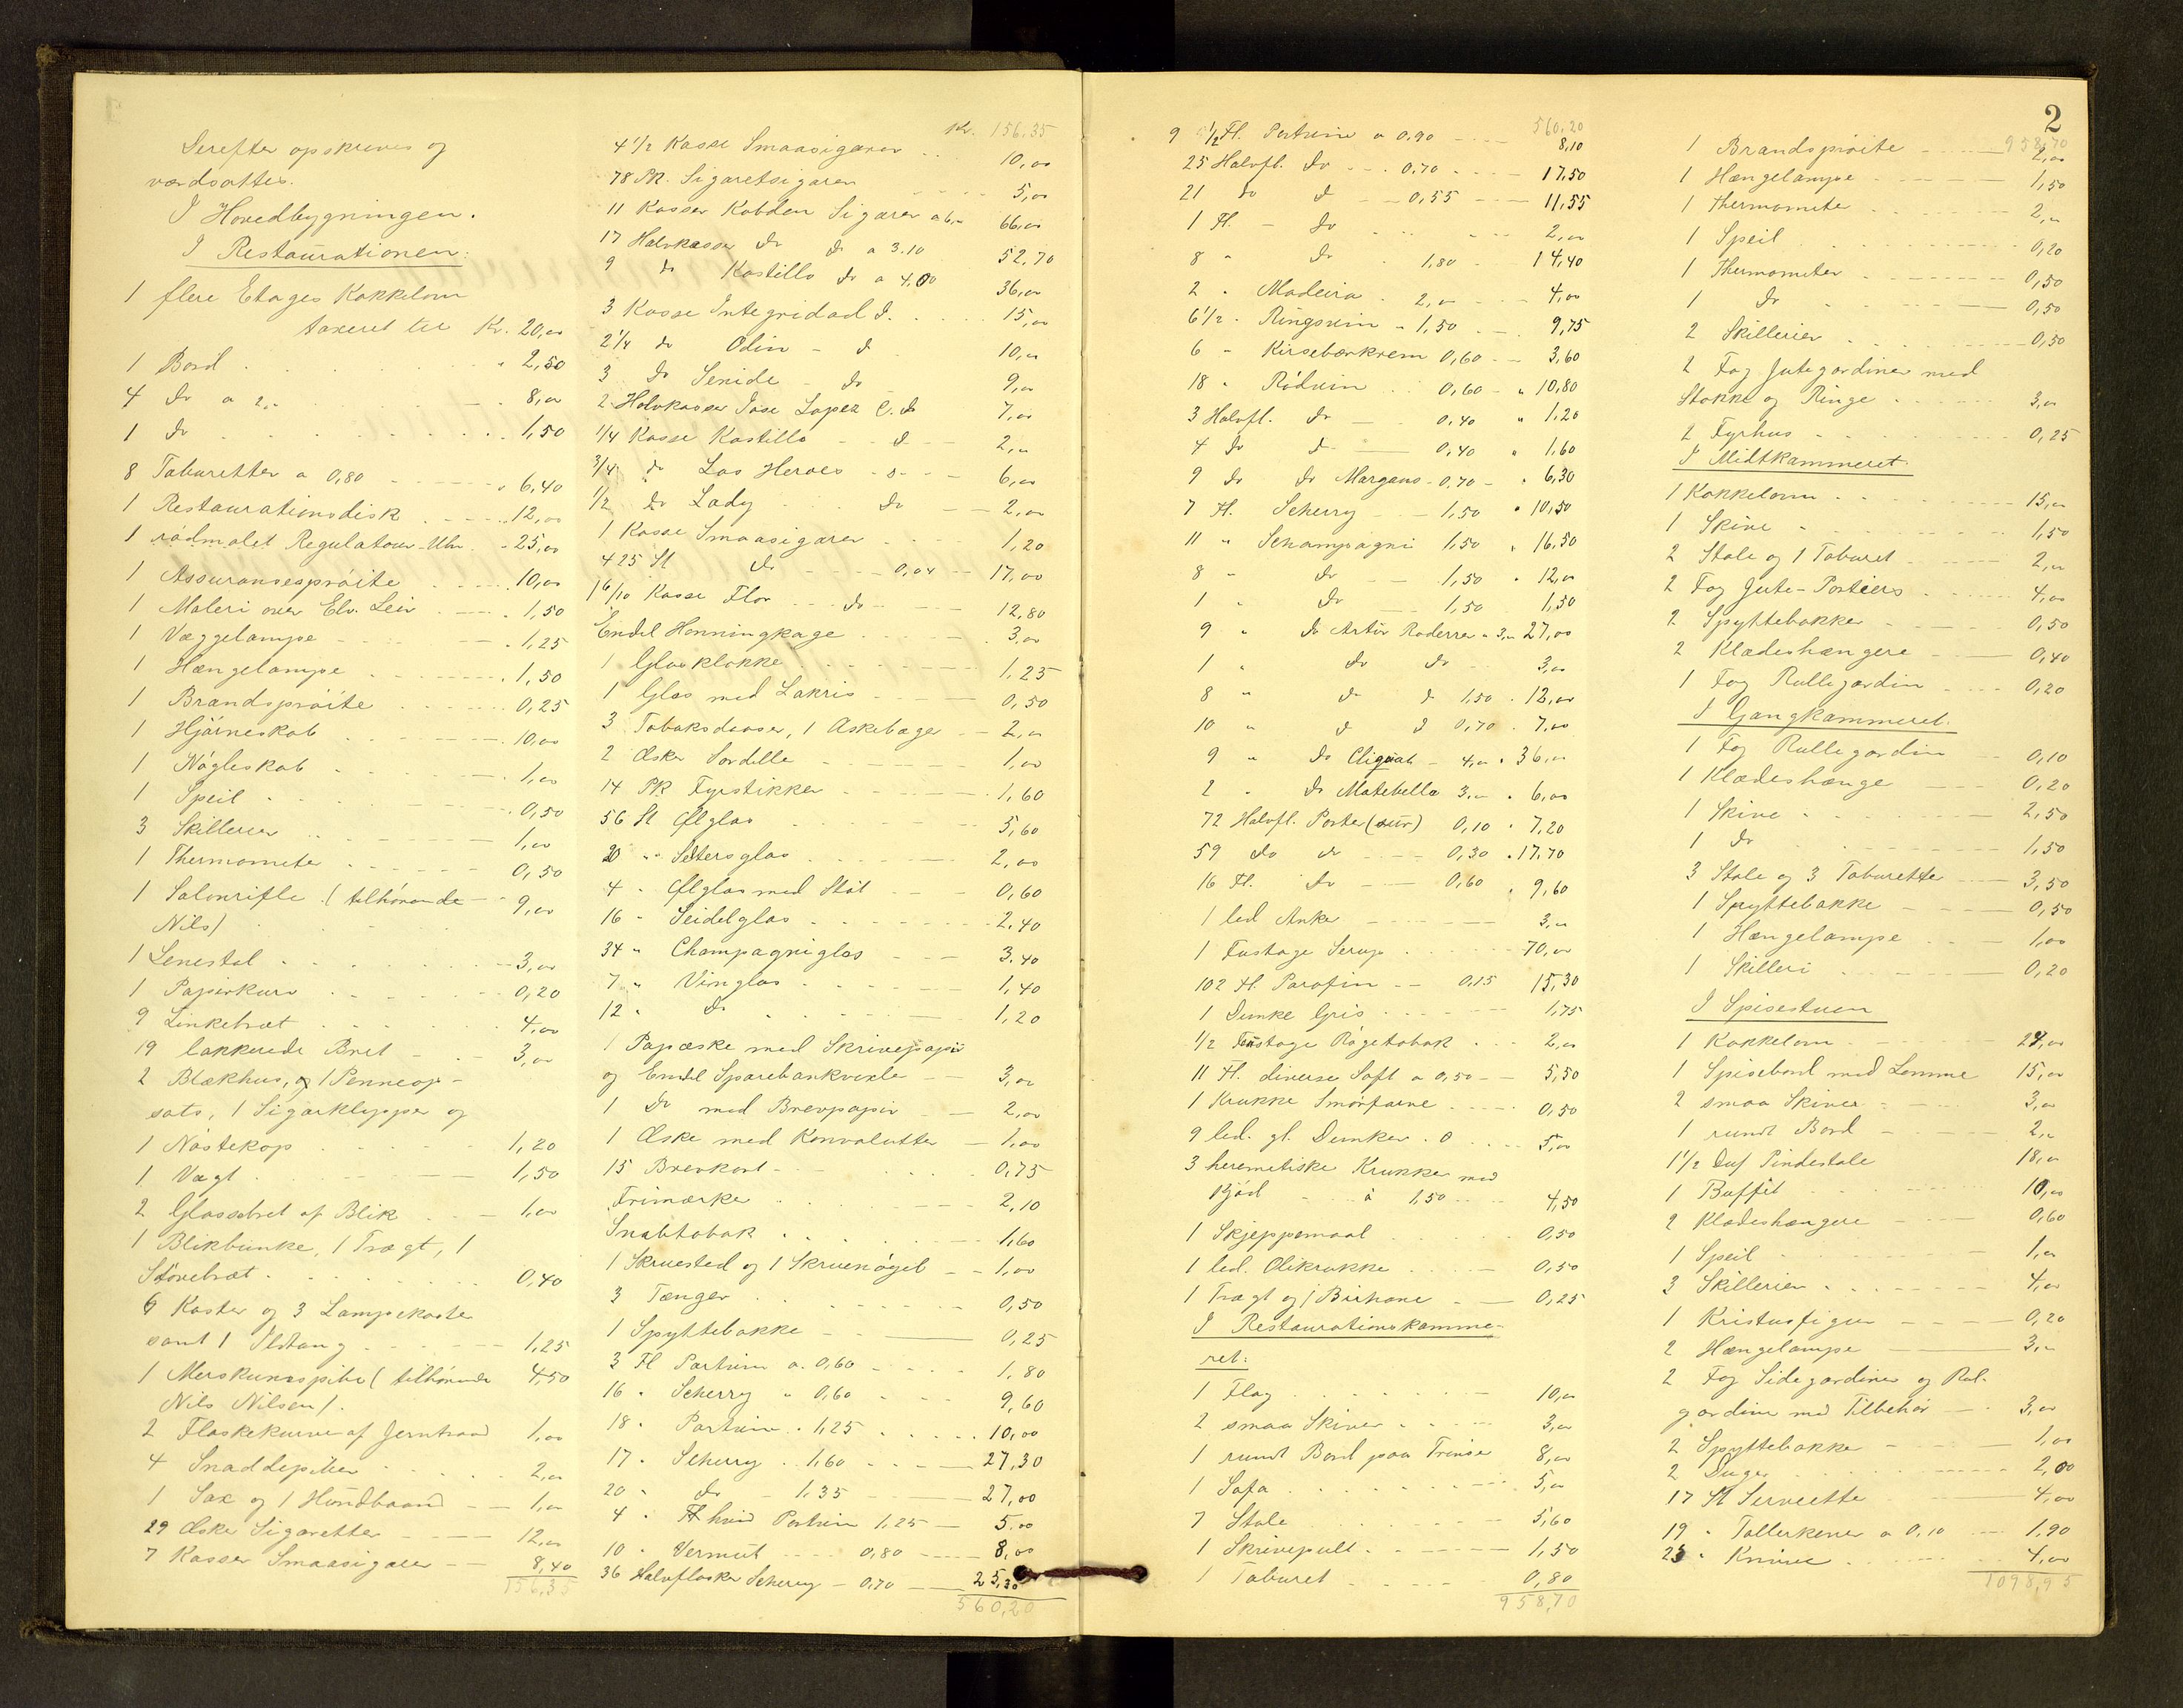 Derefter opskreves og
værdsattes.
I Hovedbygningen.
I Restaurationen:
1 flere Etages Kakkelovn
taxeret til Kr. 20,00
1 Bord . . . " 2,50
4 do a 2,- . . . 8,00
1 do . . . 1,50
8 Taburetter a 0,80 - - - " 6,40
1 Restaurationsdisk . - - - 12,00
1 rødmalet Regulatour-Uhr . " 25,00
1 Assurancesprøite - - - 10,00
1 Maleri over Elv. Leir - - - 1,50
1 Væggelampe - - - 1,25
1 Hængelampe - - - 1,50
1 Brandsprøite - - - 0,25
1 Hjørneskab - - - 10,00
1 Nøgleskab - - - 1,00
1 Speil - - - 0,50
3 Skillerier - - - 1,00
1 Thermometer - - - 0,50
1 Salonrifle (tilhørende - - 9,00
Nils)
1 Lenestol - - - 3,00
1 Papirkurv - - - 0,20
9 Linkebræt . . . 4,00
19 lakkerede Bret - - - 3,00
2 Blækhus, og 1 Penneop-
sats, 1 Sigarklypper og
1 Nøstekop - - - 1,20
1 Vægt - - - 1,50
2 Glassbret af Blik - - 1,00
1 Blikbunke, 1 Trægt, 1
Støvebræt - - - 0,40
6 Koster og 3 Lampekoste
samt 1 Ildtang - - - 1,25
1 Merskumspibe (tilhørende 4,50
Nils Nilsen).
2 Flaskekurve af Jerntraad 1,00
4 Snaddepiber - - - 2,00
1 Sax og 1 Hundbaand - - 1,00
29 Æsker Sigaretter - - - 12,00
7 Kasser Smaasigarer - - 8,40
156,35
Kr. 156,35
4 1/2 Kasse Smaasigarer . . 10,00
78 Pk. Sigaretsigarer - - - 5,00
11 Kasser Kobden Sigarer a 6,- 66,00
17 Halvkasser do do a 3.10 52,70
9 do Kastillo do a 4,00 36,00
3 Kasse Integridad d. . . . 15,00
2 1/4 do Odin - d 10,00
3 do Senide - do 9,00
2 Halvkasser Jose Lopez C. do 7,00
1/4 Kasse Kastillo - - d - - 2,00
3/4 do Las Heroes - s - - 6,00
1/2 do Lady - - do - - 2,00
1 Kasse Smaasigarer - - - 1,20
425 St do - - - 0,04 - - 17,00
16/10 Kasse Flor - - do - - - 12,80
Endel Honningkage - - - 3,00
1 Glasklokke - - - 1,25
1 Glas med Lakris - - - 0,50
3 Tobaksdaaser, 1 Askebæger - - 2,00
2 Æsker Sordelle - - - 1,00
14 Pk Fyrstikker - - - 1,60
56 St Ølglas - - - 5,60
20 " Seltersglas - - - 2,00
4 " Ølglas med Støt - - - 0,60
16 " Seidelglas - - - 2,40
34 " Champagniglas - - - 3,40
7 " Vinglas - - - 1,40
12 " do - - - 1,20
1 Papæske med Skrivepapir
og Endel Sparebankvexle - - 3,00
1 do med Brevpapir - - 2,00
1 Æske med Konvolutter - 1,00
15 Brevkort - - - 0,75
Frimærker - - - 2,10
Snabtobak - - - 1,60
1 Skruested og 1 Skruenøgel - - 1,00
3 Tænger - - - 0,50
1 Spyttebakke - - - 0,25
3 Fl Portvin a 0,60 - - - 1,80
16 " Scherry " 0,60 - - - 9,60
18 " Portvin " 1,25 - - - 10,00
17 " Scherry " 1,60 - - - 27,30
20 " do - 1,35 - - - 27,00
4 " Fl hvid Portvin 1,25 - 5,00
10 " Vermut - - - 0,80 - - - 8,00
36 Halvflasker Scherry - 0,70 - - 25,30
560,20
560,20
9 1/2 Fl. Portvin a 0,90 - - - 8,10
25 Halvfl. do - - - 0,70 - - - 17,50
21 do d - - 0,55 - - - 11,55
1 Fl. - do - - - 2,00
8 " do - 1,80 - 14,40
2 " Madeira . 2,00 - - 4,00
6 1/2 " Ringsvin - 1,50 - - 9,75
6 " Kirsebærkrem 0,60 - - 3,60
18 " Rødvin . . 0,60 - " 10,80
3 Halvfl. do - 0,40 " 1,20
4 do d - 0,40 " 1,60
9 do do Margaus - 0,70 - " 6,30
7 Fl. Scherry - - 1,50 " 10,50
11 " Schampagni 1,50 " 16,50
8 " do - 1,50 " 12,00
1 " do - 1,50 1,50
9 " do Artur Roderrer a 3,- 27,00
1 " do do - 3,00
8 " d d 1,50 " 12,00
10 " d d 0,70 " 7,00
9 " do Cliquot - 4,00 " 36,00
2 " do Matebella 3,- " 6,00
72 Halvfl. Porter (sur) 0,10 " 7,20
59 do do - - - 0,30 " 17,70
16 Fl. do - - - 0,60 " 9,60
1 led Anker - - - 3,00
1 Fustage Serup - - - 70,00
102 Fl. Parafin - - 0,15 15,30
1 Dunke Gris - - - 1,75
1/2 Fustage Røgetobak - - - 2,00
11 Fl. diverse Saft a 0,50 - - 5,50
1 Krukke Smørfarve - - - 0,50
9 led. gl. Dunker . 0 . . . 5,00
3 heremetiske Krukker med
Kjød - - - à 1,50 - - - 4,50
1 Skjeppemaal - - - 0,50
1 led. Olikrukke - - - 0,50
1 Trægt og 1 Birhane - - 0,25
I Restaurationskamme-
ret:
1 Flag - - - 10,00
2 smaa Skiver - - - 3,00
1 rundt Bord paa Trinse 8,00
1 Sofa - - - 5,00
7 Stole - - - 5,60
1 Skrivepult - - - 1,50
1 Taburet - - - 0,80
958,70
2
958,70
1 Brandsprøite - - - 2,00
1 Hængelampe - - - 1,50
1 Thermometer - - - 2,00
1 Speil - - - 0,20
1 Thermometer - - - 0,50
1 do - - - 0,50
2 Skillerier - - - 0,50
2 Fag Jutegardiner med
Stokke og Ringe - - - 3,00
2 Fyrhus - - - 0,25
I Midtkammeret.
1 Kakkelovn - - - 15,00
1 Skive - - - 1,50
2 Stole og 1 Taburet - - - 2,00
2 Fag Jute-Portiers - - - 4,00
2 Spyttebakker - - - 0,50
2 Klædeshængere - - - 0,40
1 Fag Rullegardin - - - 0,20
I Gangkammeret.
1 Fag Rullegardin - - 0,10
1 Klædeshænge - - - 0,20
1 Skive - - - 2,50
1 do - - - 1,50
3 Stole og 3 Taburetter - - 3,50
1 Spyttebakke - - - 0,50
1 Hængelampe - - - 1,00
1 Skilleri - - - 0,20
I Spisestuen
1 Kakkelovn - - - 24,00
1 Spisebord med Lemme 15,00
2 smaa Skiver - - - 3,00
1 rundt Bord - - - 2,00
1 1/2 Dus Pindestole 18,00
1 Buffet - - - 10,00
2 Klædeshængere - - - 0,60
1 Speil - - - 1,00
3 Skillerier - - - 4,00
1 Kristusfigur - - - 0,20
2 Hængelampe - - - 3,00
2 Fag Sidegardiner og Rul-
gardine med Tilbehør - - 3,00
2 Spyttebakke - - - 1,00
2 Duger - - - 2,00
17 St Servietter - - - 4,00
19 " Tallerkener a 0,10 - - 1,90
25 " Knive - - - 4,00
1098,95